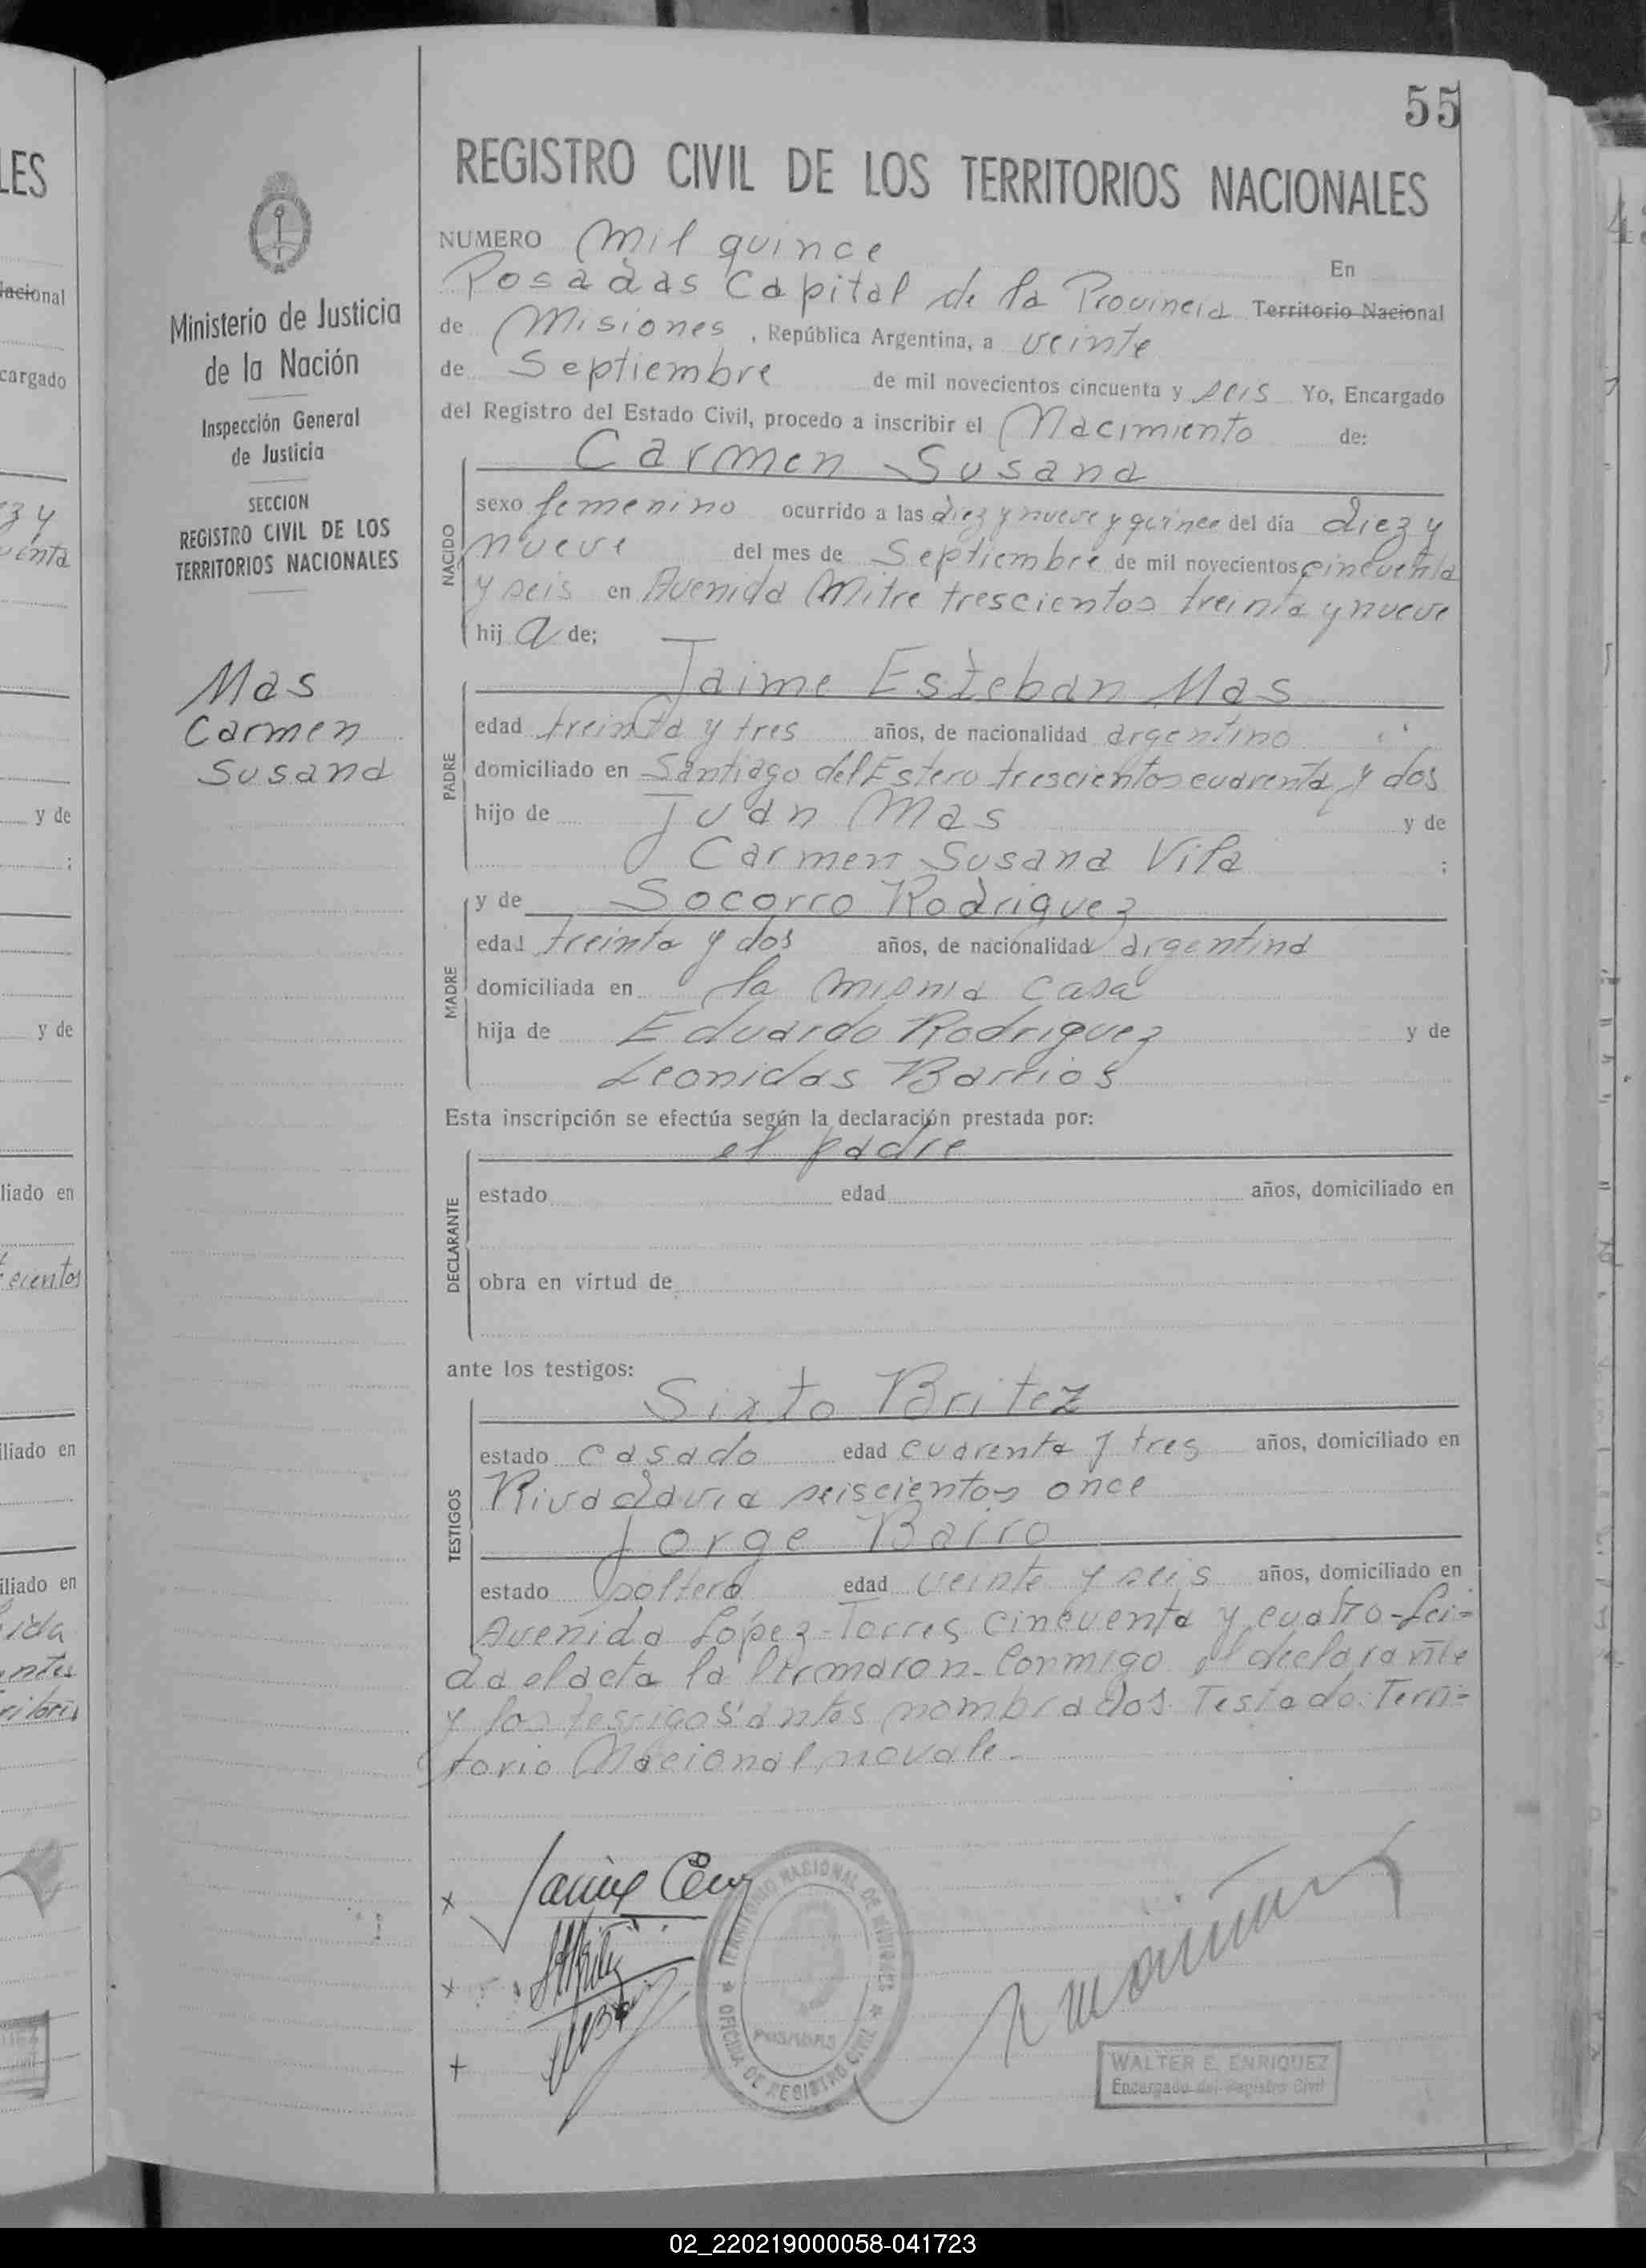 LES
Nacional
cargado
ez y
uenta
y de
;
y de
liado en
ecientos
iliado en
iliado en
ida
entes
ritorio
Ministerio de Justicia
de la Nación
Inspección General
de Justicia
SECCION
REGISTRO CIVIL DE LOS
TERRITORIOS NACIONALES
Mas
Carmen
Susana
55
REGISTRO CIVIL DE LOS TERRITORIOS NACIONALES
NUMERO Mil quince En
Posadas Capital de la Provincia Territorio Nacional
de Misiones, República Argentina, a veinte
de Septiembre de mil novecientos cincuenta y seis Yo, Encargado
del Registro del Estado Civil, procedo a inscribir el Nacimiento de:
Carmen Susana
NACIDO
sexo femenino ocurrido a las diez y nueve y quince del día diez y
nueve del mes de Septiembre de mil novecientos cincuenta
y seis en Avenida Mitre trescientos treinta y nueve
hija de;
Jaime Esteban Mas
PADRE
edad treinta y tres años, de nacionalidad argentino
domiciliado en Santiago del Estero trescientos cuarenta y dos
hijo de Juan Mas y de
Carmen Susana Vila ;
y de Socorro Rodriguez
MADRE
edad treinta y dos años, de nacionalidad argentina
domiciliada en la misma casa
hija de Eduardo Rodriguez y de
Leonidas Barrios
Esta inscripción se efectúa según la declaración prestada por:
el padre
DECLARANTE
estado edad años, domiciliado en
obra en virtud de
ante los testigos:
Sixto Britez
TESTIGOS
estado casado edad cuarenta y tres años, domiciliado en
Rivadavia seiscientos once
Jorge Bairo
estado soltero edad veinte y seis años, domiciliado en
Avenida López Torres cincuenta y cuatro - Lei=
da el acta la firmaron conmigo el declarante
y los testigos antes nombrados. Testado: Terri=
torio Nacional, no vale -
TERRITORIO NACIONAL DE MISIONES
OFICINA DE REGISTRO CIVIL
POSADAS
WALTER E. ENRIQUEZ
Encargado del Registro Civil
02_220219000058-041723